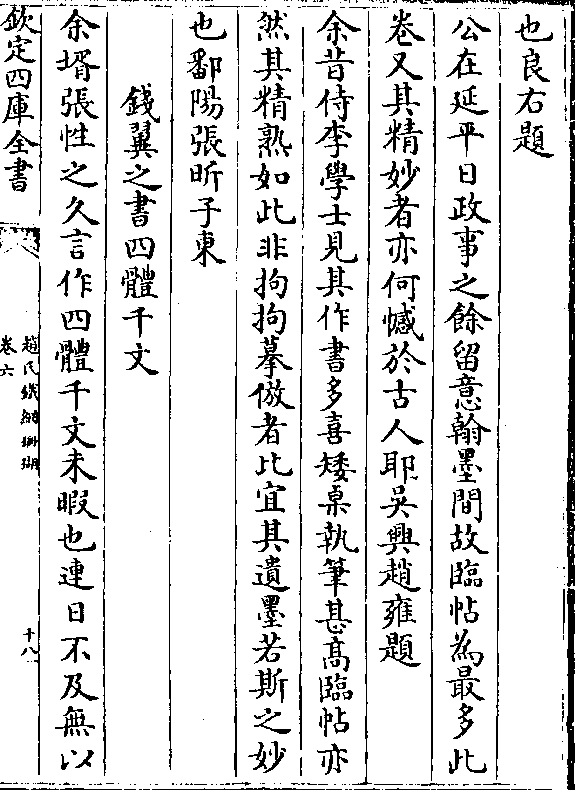 也良右題
公在延平日政事之餘留意翰墨間故臨帖為最多此
卷又其精妙者亦何憾於古人耶吳興趙雍題
余昔侍李學士見其作書多喜矮桌執筆甚髙臨帖亦
然其精熟如此非拘拘摹倣者比宜其遺墨若斯之妙
也鄱陽張昕子東
錢翼之書四體千文
余壻張性之久言作四體千文未暇也連日不及無以
欽定四庫全書
趙氏鐵網珊瑚
卷六
十八